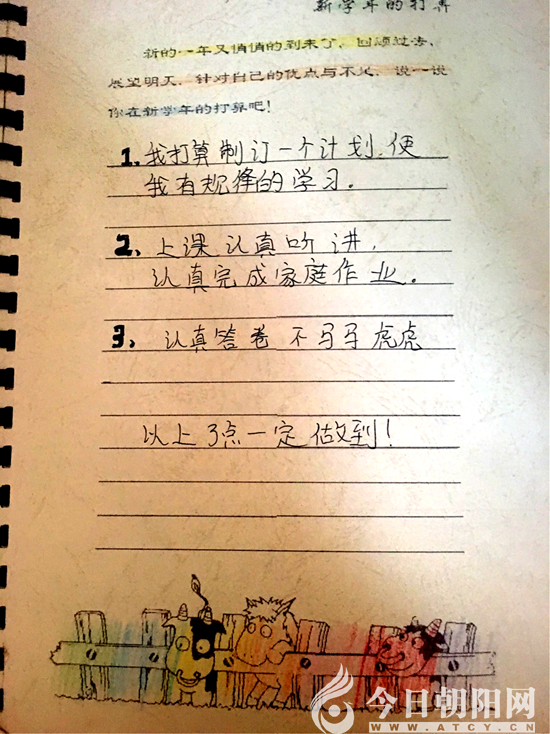 新学年的打算
新的一年又悄悄的到来了，回顾过去、
展望明天，针对自己的优点与不足，说一说
你在新学年的打算吧！
1.我打算制订一个计划,使
我有规律的学习.
2、上课认真听讲,
认真完成家庭作业.
3、认真答卷 不马马虎虎
以上3点一定做到!
今日朝阳网
WWW.ATCY.CN